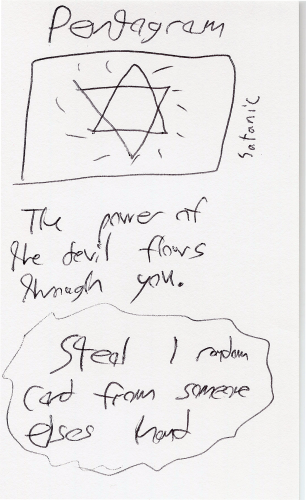 Pentagram
Satanic
The power of
the devil flows
through you.
Steal 1 random
card from someone
elses hand